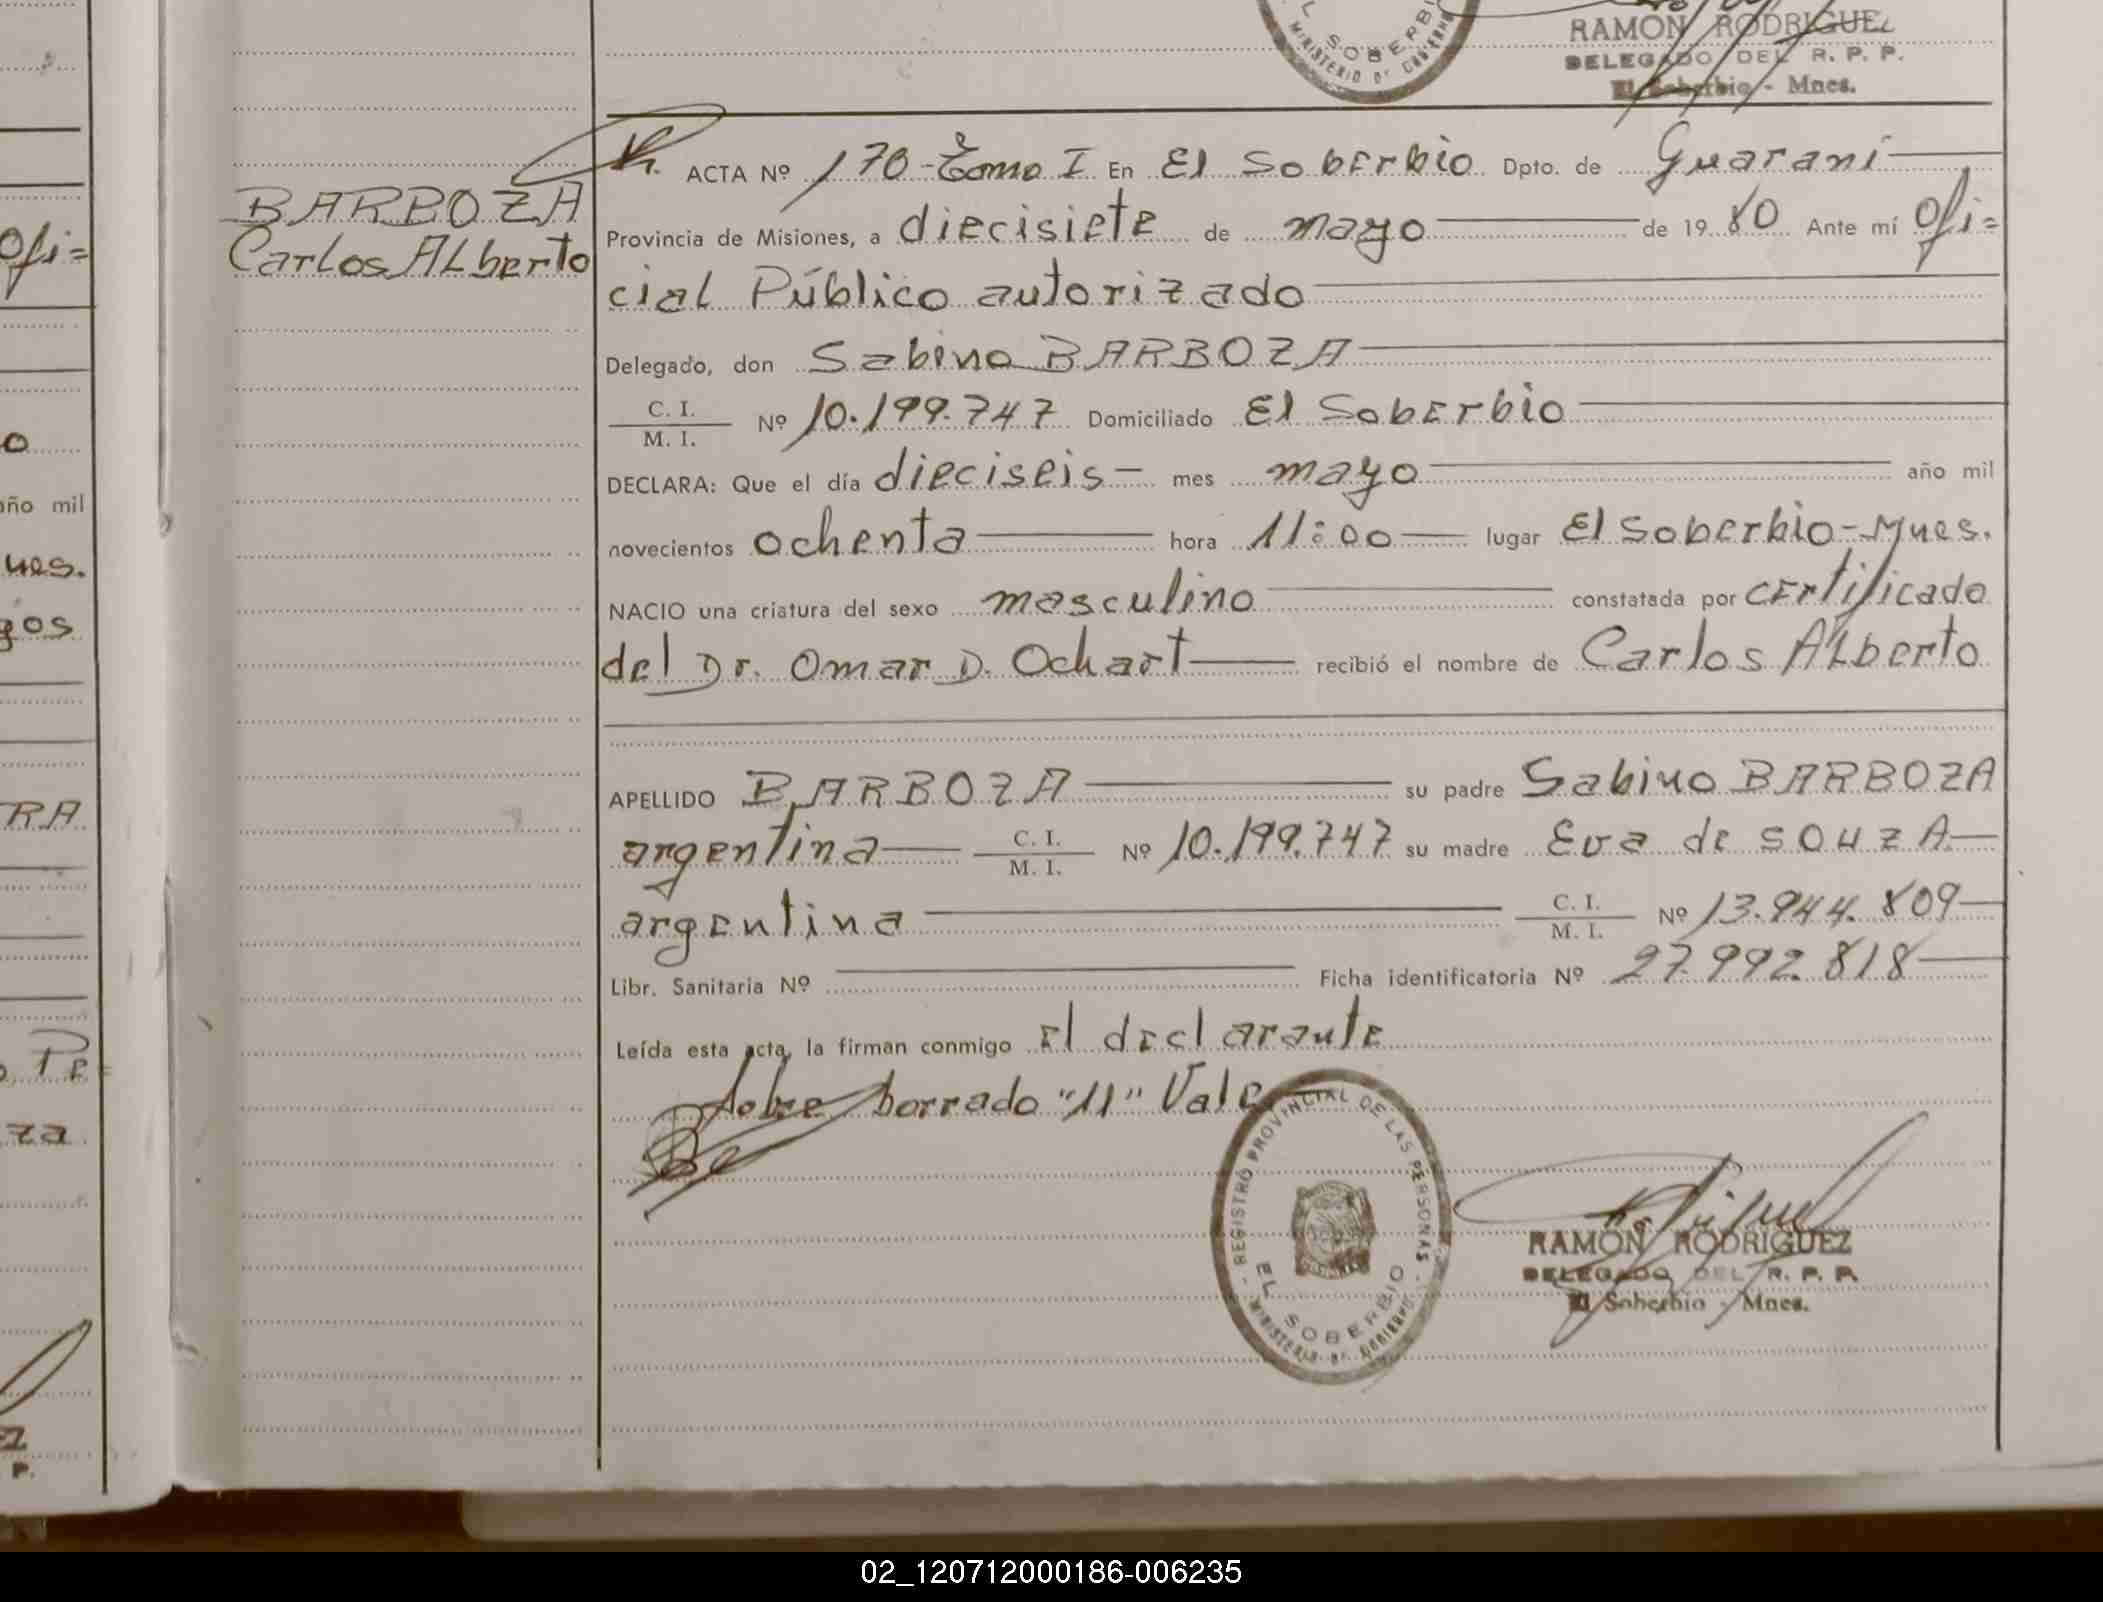 EL SOBERBIO
MINISTERIO DE GOBIERNO
RAMÓN RODRIGUEZ
DELEGADO DEL R. P. P.
El Soberbio - Mnes.
BARBOZA
Carlos ALberto
ACTA Nº 170-Tomo I En El Soberbio Dpto. de Guaraní
Provincia de Misiones, a diecisiete de mayo de 1980 Ante mí Ofi=
cial Público autorizado
Delegado, don Sabino BARBOZA
C. I.
M. I.
Nº 10.199.747 Domiciliado El Soberbio
DECLARA: Que el día dieciseis mes mayo año mil
novecientos ochenta hora 11:00 lugar El Soberbio-Mnes.
NACIO una criatura del sexo masculino constatada por certificado
del Dr. Omar D. Ochart recibió el nombre de Carlos ALberto
APELLIDO BARBOZA su padre Sabino BARBOZA
argentina C. I.
M. I.
Nº 10.199.747 su madre Eva de SOUZA
argentina C. I.
M. I.
Nº 13.944.809
Libr. Sanitaria Nº Ficha identificatoria Nº 27.992.818
Leída esta acta, la firman conmigo El declarante
Sobre borrado "11" Vale
REGISTRO PROVINCIAL DE LAS PERSONAS
EL SOBERBIO
MINISTERIO DE GOBIERNO
RAMÓN RODRIGUEZ
DELEGADO DEL R. P. P.
El Soberbio - Mnes.
Ofi=
o
año mil
nes.
gos
RA
Pe
za
EZ
P.
02_120712000186-006235